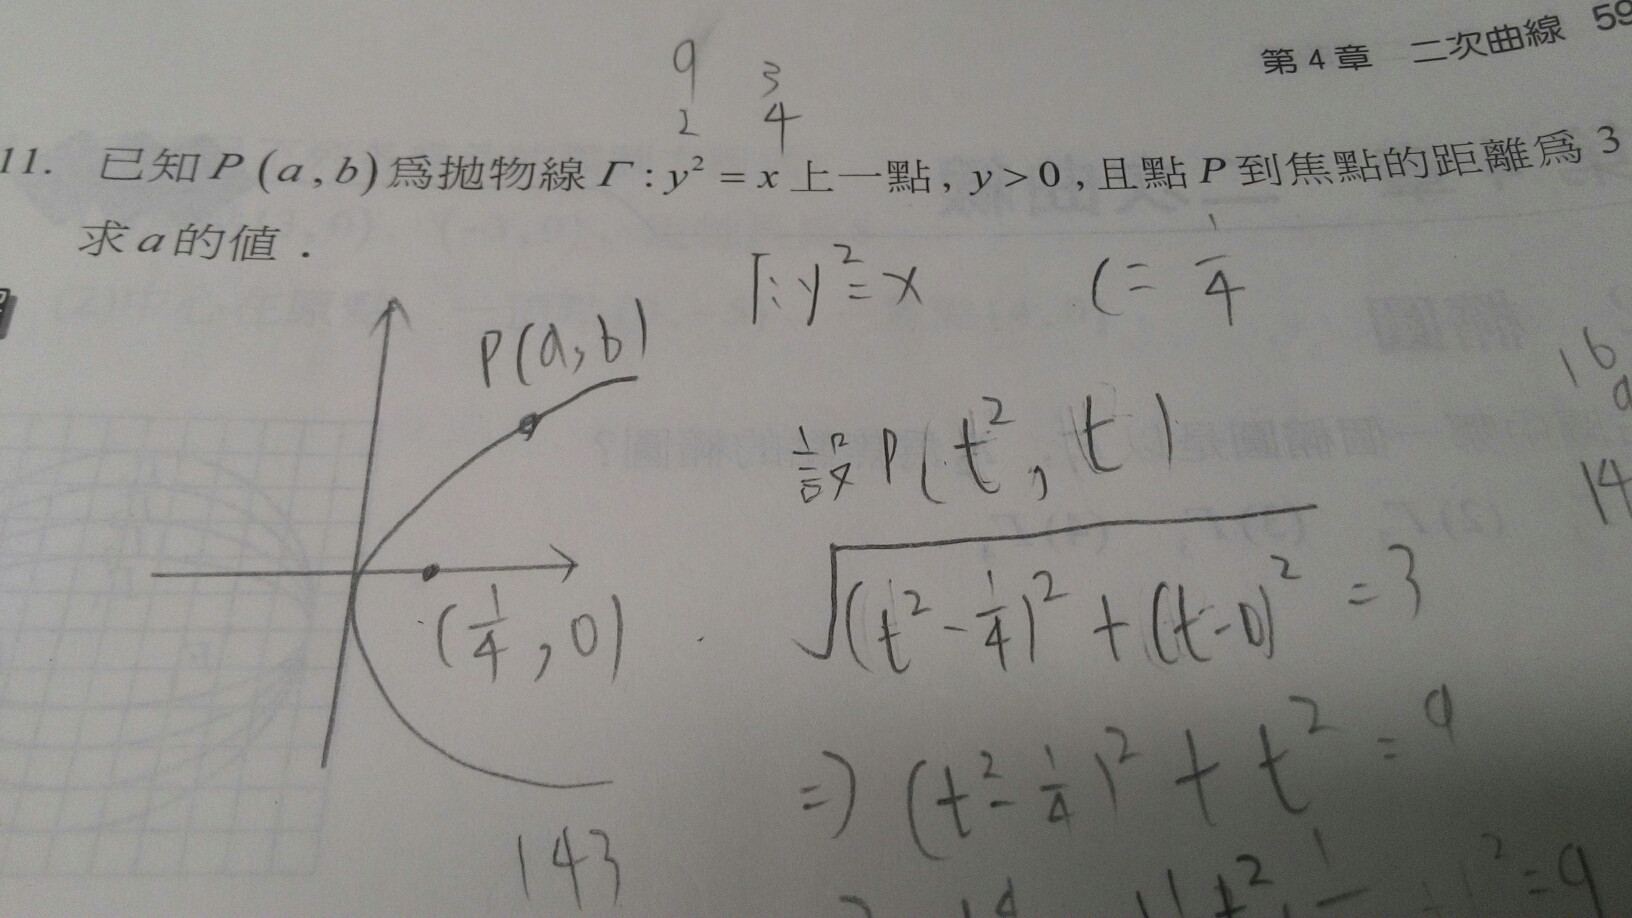 第 4 章 二次曲線 59
9 3
2 4
11. 已知 P (a , b) 為拋物線 Γ : y² = x 上一點 , y > 0 , 且點 P 到焦點的距離為 3
求 a 的值 .
Γ: y² = x c = 1/4
P(a, b)
設 P(t², t)
√((t² - 1/4)² + (t - 0)²) = 3
(1/4, 0)
⇒ (t² - 1/4)² + t² = 9
143